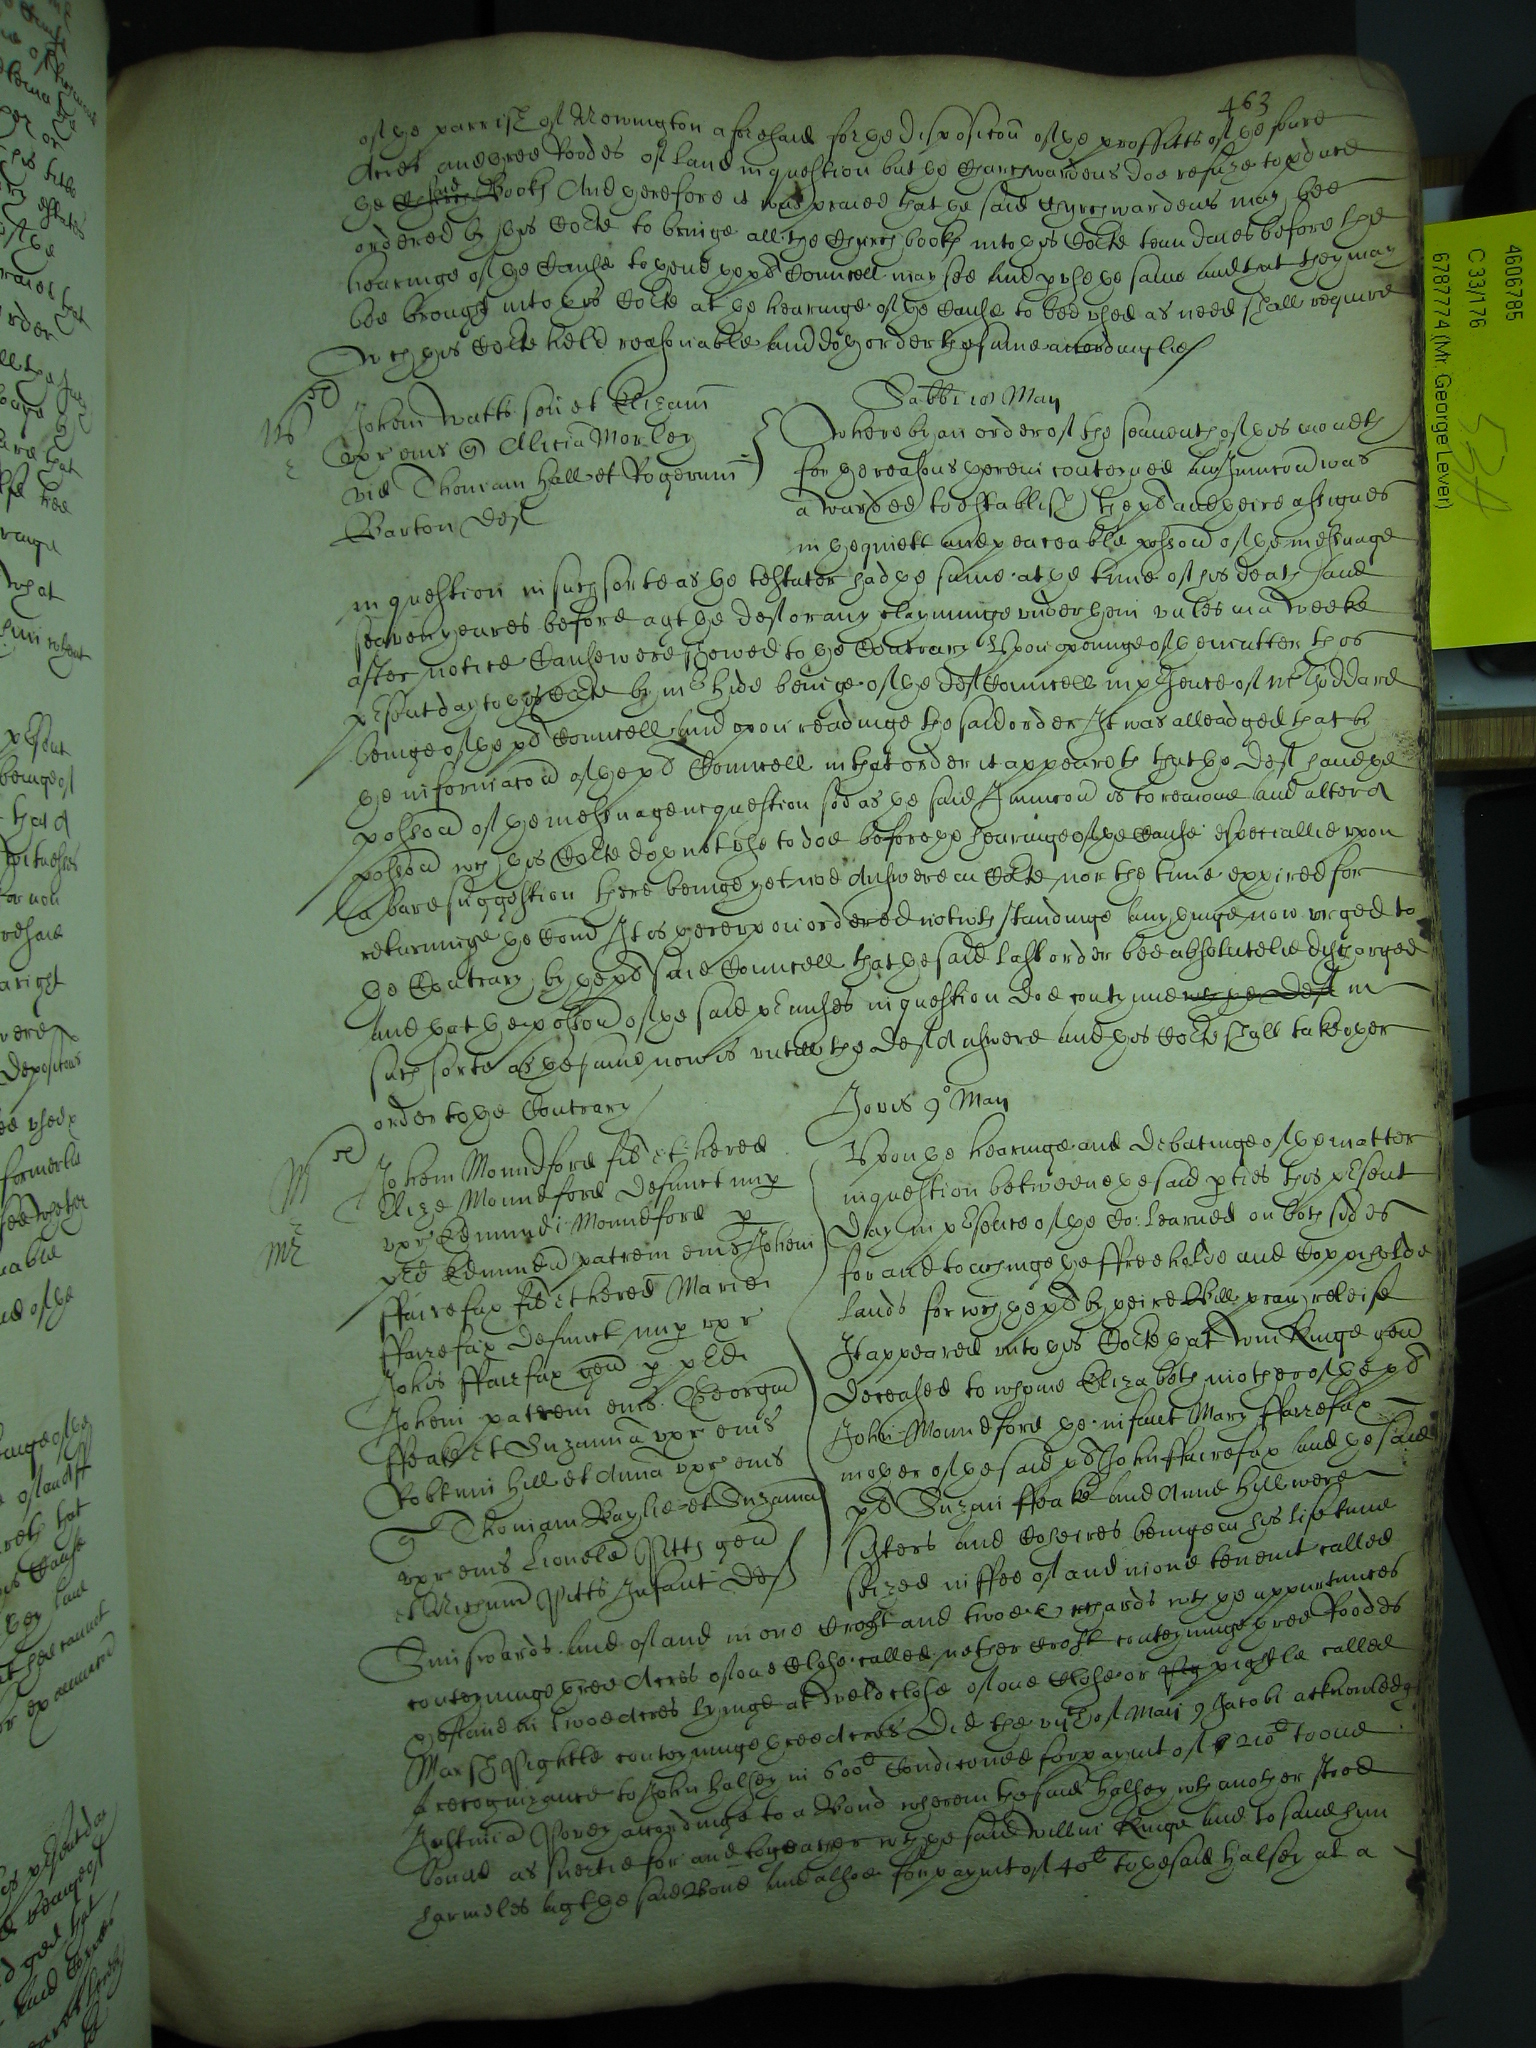 463
of the parrish of Mownington aforesaid for the disposicon of the proffitts of the foure
Acres and three Roodes of land in question but the Churchwardens doe refuse to produce
the said Books And therefore it was praied that the said Churchwardens may bee
ordered by this Cote to bringe all the Church books into this Cote tenn daies before the
hearinge of the Cause to thend the pl Councell may see and pvse the same and that they may
bee brought into this Cote at the hearinge of the Cause to bee vsed as need shall require
Wch this Cote held reasonable and doth order the same accordinglie
Johem Watts sen et Elizam
vxr eius Alicia Morley
vid Thomam Hall et Rogerum
Barton Def
Sabbti 10 Maij
Where by an order of the seaventh of this moneth
for the reasons therein conteyned an Iniuncon was
awarded to establish the pl and theire assignes
in the quiett and peaceable possion of the messuage
in question in such sorte as the testator had the same at the time of his death and
seaven yeares before agt the def or any clayminge vnder them vnles in a weeke
after notice Cause were shewed to the Contrary Vpon openinge of the matter this
psent day to this Cote by mr Hide beinge of the def Councell in psence of mr Goddard
beinge of the pl Councell and vpon readinge the said order It was alleadged that by
the informacon of the pl Councell in that order it appeareth that the Def have the
possion of the messuage in question soe as the said Iniuncon is to remove and alter a
possion wch this Cote doth not vse to doe before the hearinge of the Cause especiallie vpon
a bare suggestion there beinge yet noe Answere in Cote nor the time expired for
returninge the Comon It is therevpon ordered notwthstandinge any thinge now vrged to
the Contrary by the pl said Councell that the said last order bee absolutelie discharged
and that the possion of the said pmisses in question doe contynue wth the Def in
such sorte as the same now is vntill the Def Answere and this Cote shall take other
order to the Contrary
Johem Moundford fil et hered
Elize Moundford defunct nup
vxr Edmundi Moundford p
pred Edmund patrem eius Johem
ffairefax fil et hered Marie
ffairefax defunct nup vxr
Johis ffairfax gen p pred
Johem patrem eius Georgiu
ffeake et Suzanna vxr eius
Robtum Hill et Anna vxr eius
Thomam Baylie et Suzanna
vxr eius Lionell Pitts gen
et Richum Pitts Infant Def
Jovis 9o Maij
Vpon the hearinge and debatinge of the matter
in question betweene the said pties this psent
day in psence of the Co: learned on both sides
for and touchinge the ffreehold and Coppiehold
lands for wch the pl by theire Bill pray releife
It appeared vnto this Cote that Wm Kinge gen
deceased to whome Elizabeth mother of the pl
John Moundford the infant Mary ffairefax
mother of the said pl John ffairefax and the said
pl Suzan ffeake and Anne Hill were
sisters and Coheires beinge in his life time
seized in ffee of and in one tenemt called
Smiswards and of and in one Croft and twoe Orchards wth the appurtnces
conteyninge three Acres of one Close called nether Croft conteyninge three Roodes
thof and in twoe Acres lyinge at Weld close of one Close or pightle called
Marsh Pightle conteyninge three Acres Did the of Maij 9 Jacobi acknowledge
a recognizance to John Halsey in 600l Condiconed for paymt of 210l to one
Justinia Povey accordinge to a Bond wherein the said Halsey wth another stood
bound as suertie for and togeather wth the said Willm Kinge and to save him
harmeles agt the said Bond and alsoe for paymt of 40l to the said Halsey at a
4606785
C 33/176
6787774 (Mr. George Lever)